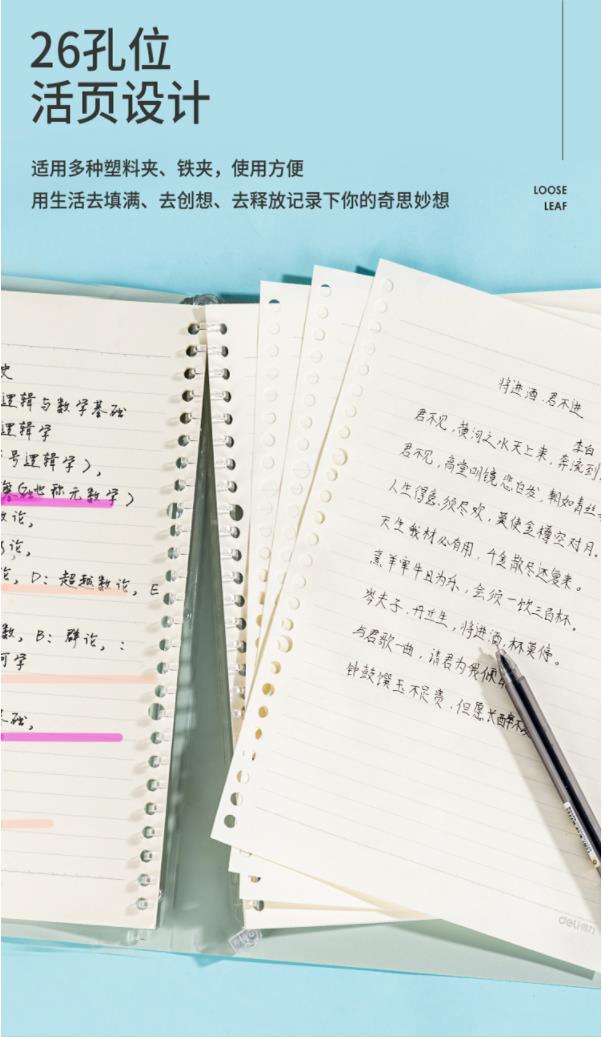 26孔位
活页设计
适用多种塑料夹、铁夹，使用方便
用生活去填满、去创想、去释放记录下你的奇思妙想
LOOSE
LEAF
史
逻辑与数学基础
逻辑学
号逻辑学），
也称元数学）
数论，
论，
论，D：超越数论，E
数，B：群论，：
何学
基础，
将进酒·君不进
李白
君不见，黄河之水天上来，奔流到
君不见，高堂明镜悲白发，朝如青丝
人生得意须尽欢，莫使金樽空对月。
天生我材必有用，千金散尽还复来。
烹羊宰牛且为乐，会须一饮三百杯。
岑夫子，丹丘生，将进酒，杯莫停。
与君歌一曲，请君为我倾
钟鼓馔玉不足贵，但愿长醉不
deli得力